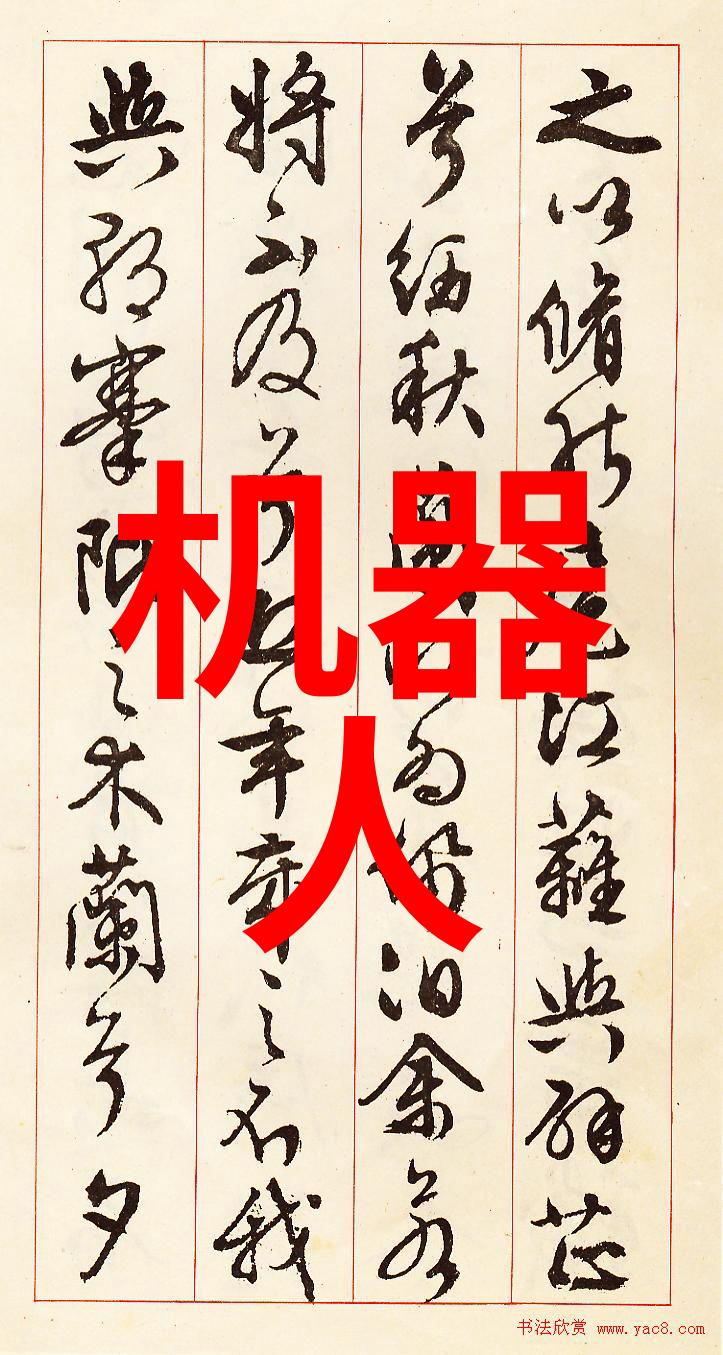 之以脩能扈江蘺與辟芷
兮紉秋蘭為佩汨余若
將不及兮恐年歲之不我
與朝搴阰之木蘭兮夕
机器
人
书法欣赏 www.yac8.com